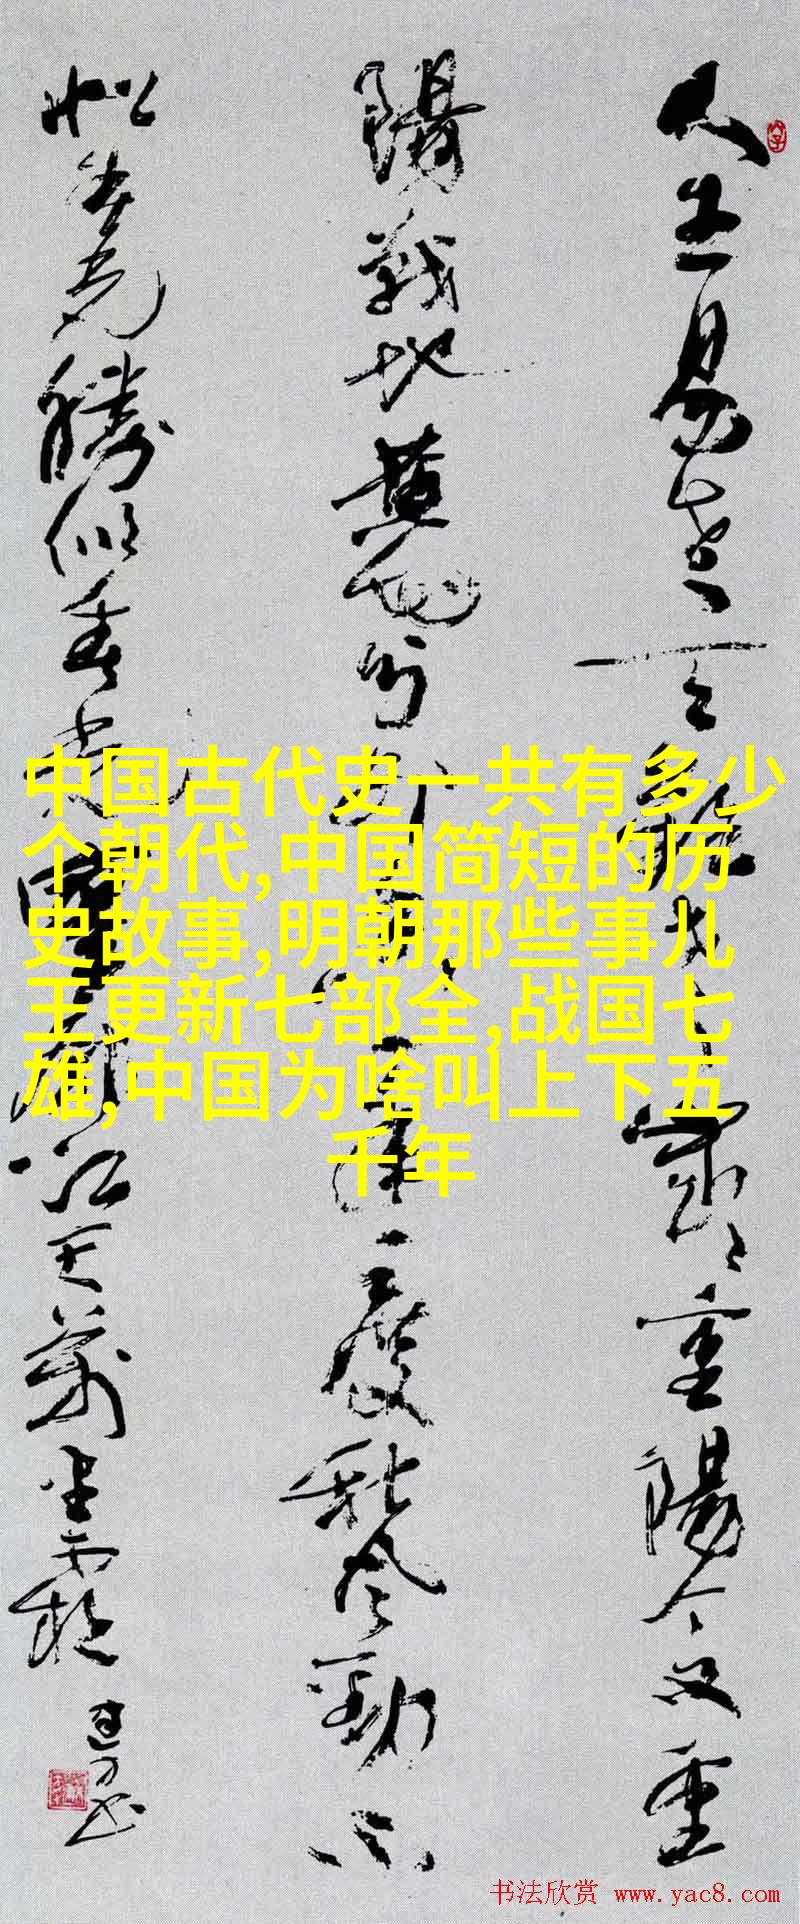 人生易老天難老歲々重陽今又重
陽戰地黃花分外香一年一度秋風勁不
似春光勝似春光寥廓江天萬里霜
中国古代史一共有多少
个朝代,中国简短的历
史故事,明朝那些事儿
王更新七部全,战国七
雄,中国为啥叫上下五
千年
书法欣赏 www.yac8.com